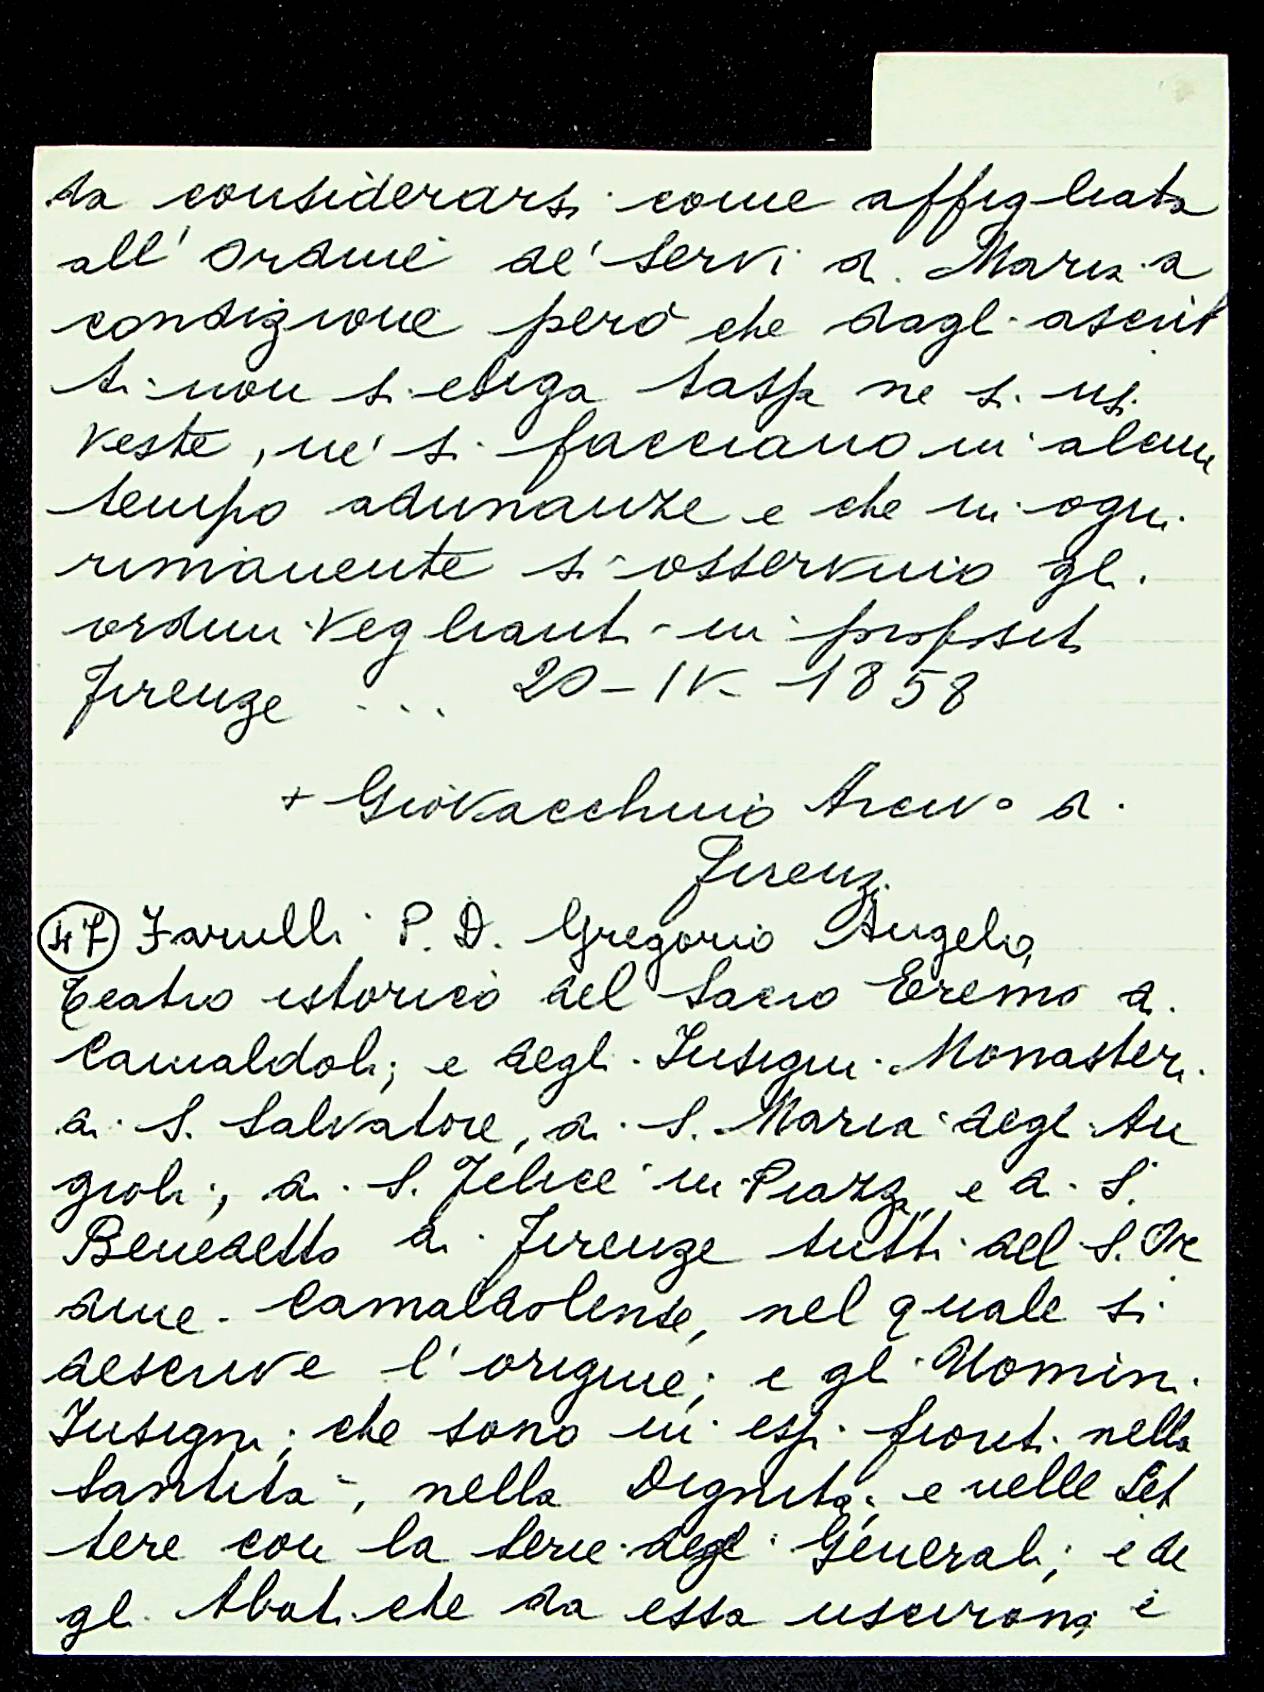 da considerarsi come affigliata
all' Ordine de' Servi di Maria a
condizione però che dagli ascrit
ti non si esiga tassa ne si usi
veste, nè si facciano in alcun
tempo adunanze e che in ogni
rimanente si osservino gli
ordini veglianti in propositi
Firenze ... 20-IV-1858
+ Giovacchino Arciv° di
Firenze
47 Farulli P. D. Gregorio Angelo,
Teatro istorico del Sacro Eremo di
Camaldoli; e degli Insigni Monasteri
di S. Salvatore, di S. Maria degli An
gioli, di S. Felice in Piazza, e di S.
Benedetto di Firenze tutti del S. Or
dine Camaldolense, nel quale si
descrive l'origine; e gli Uomini
Insigni; che sono in essi fioriti nella
Santità, nella Dignità; e nelle Let
tere con la serie degli Generali; e de
gli Abati che da essa uscirono; e